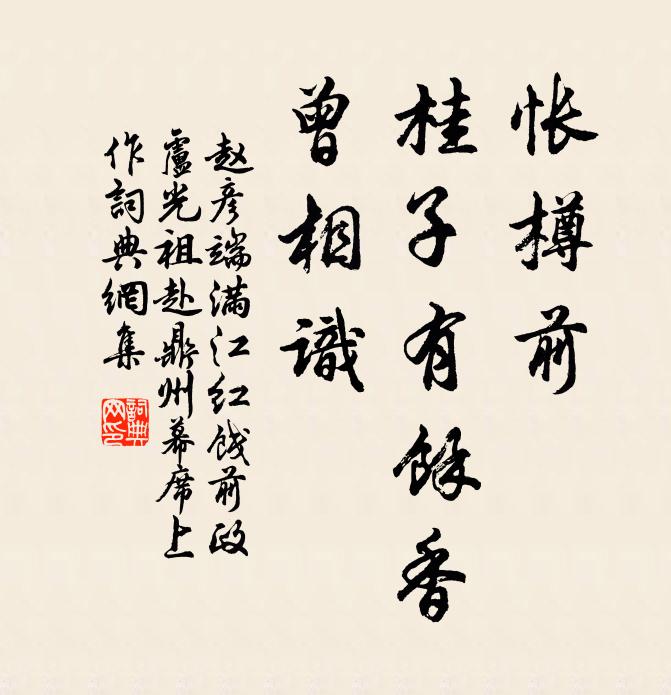 怅樽前
桂子有餘香
曾相識
赵彦端满江红饯前政
盧光祖赴鼎州幕席上
作詞典網集
詞典
网印